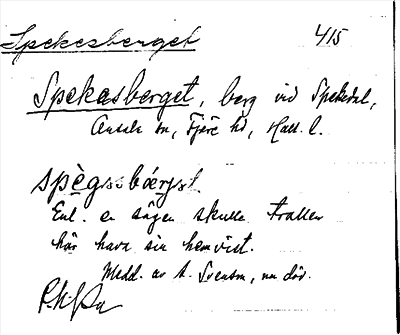 Spekesberget 415
Spekasberget, berg vid Spekedal,
sn, Fjäre hd, Hall. l.
spègssbǽrgət.
Enl. en sägen skulle trollen
här hava sin hemvist.
Medd. av A. Svensson, nu död.